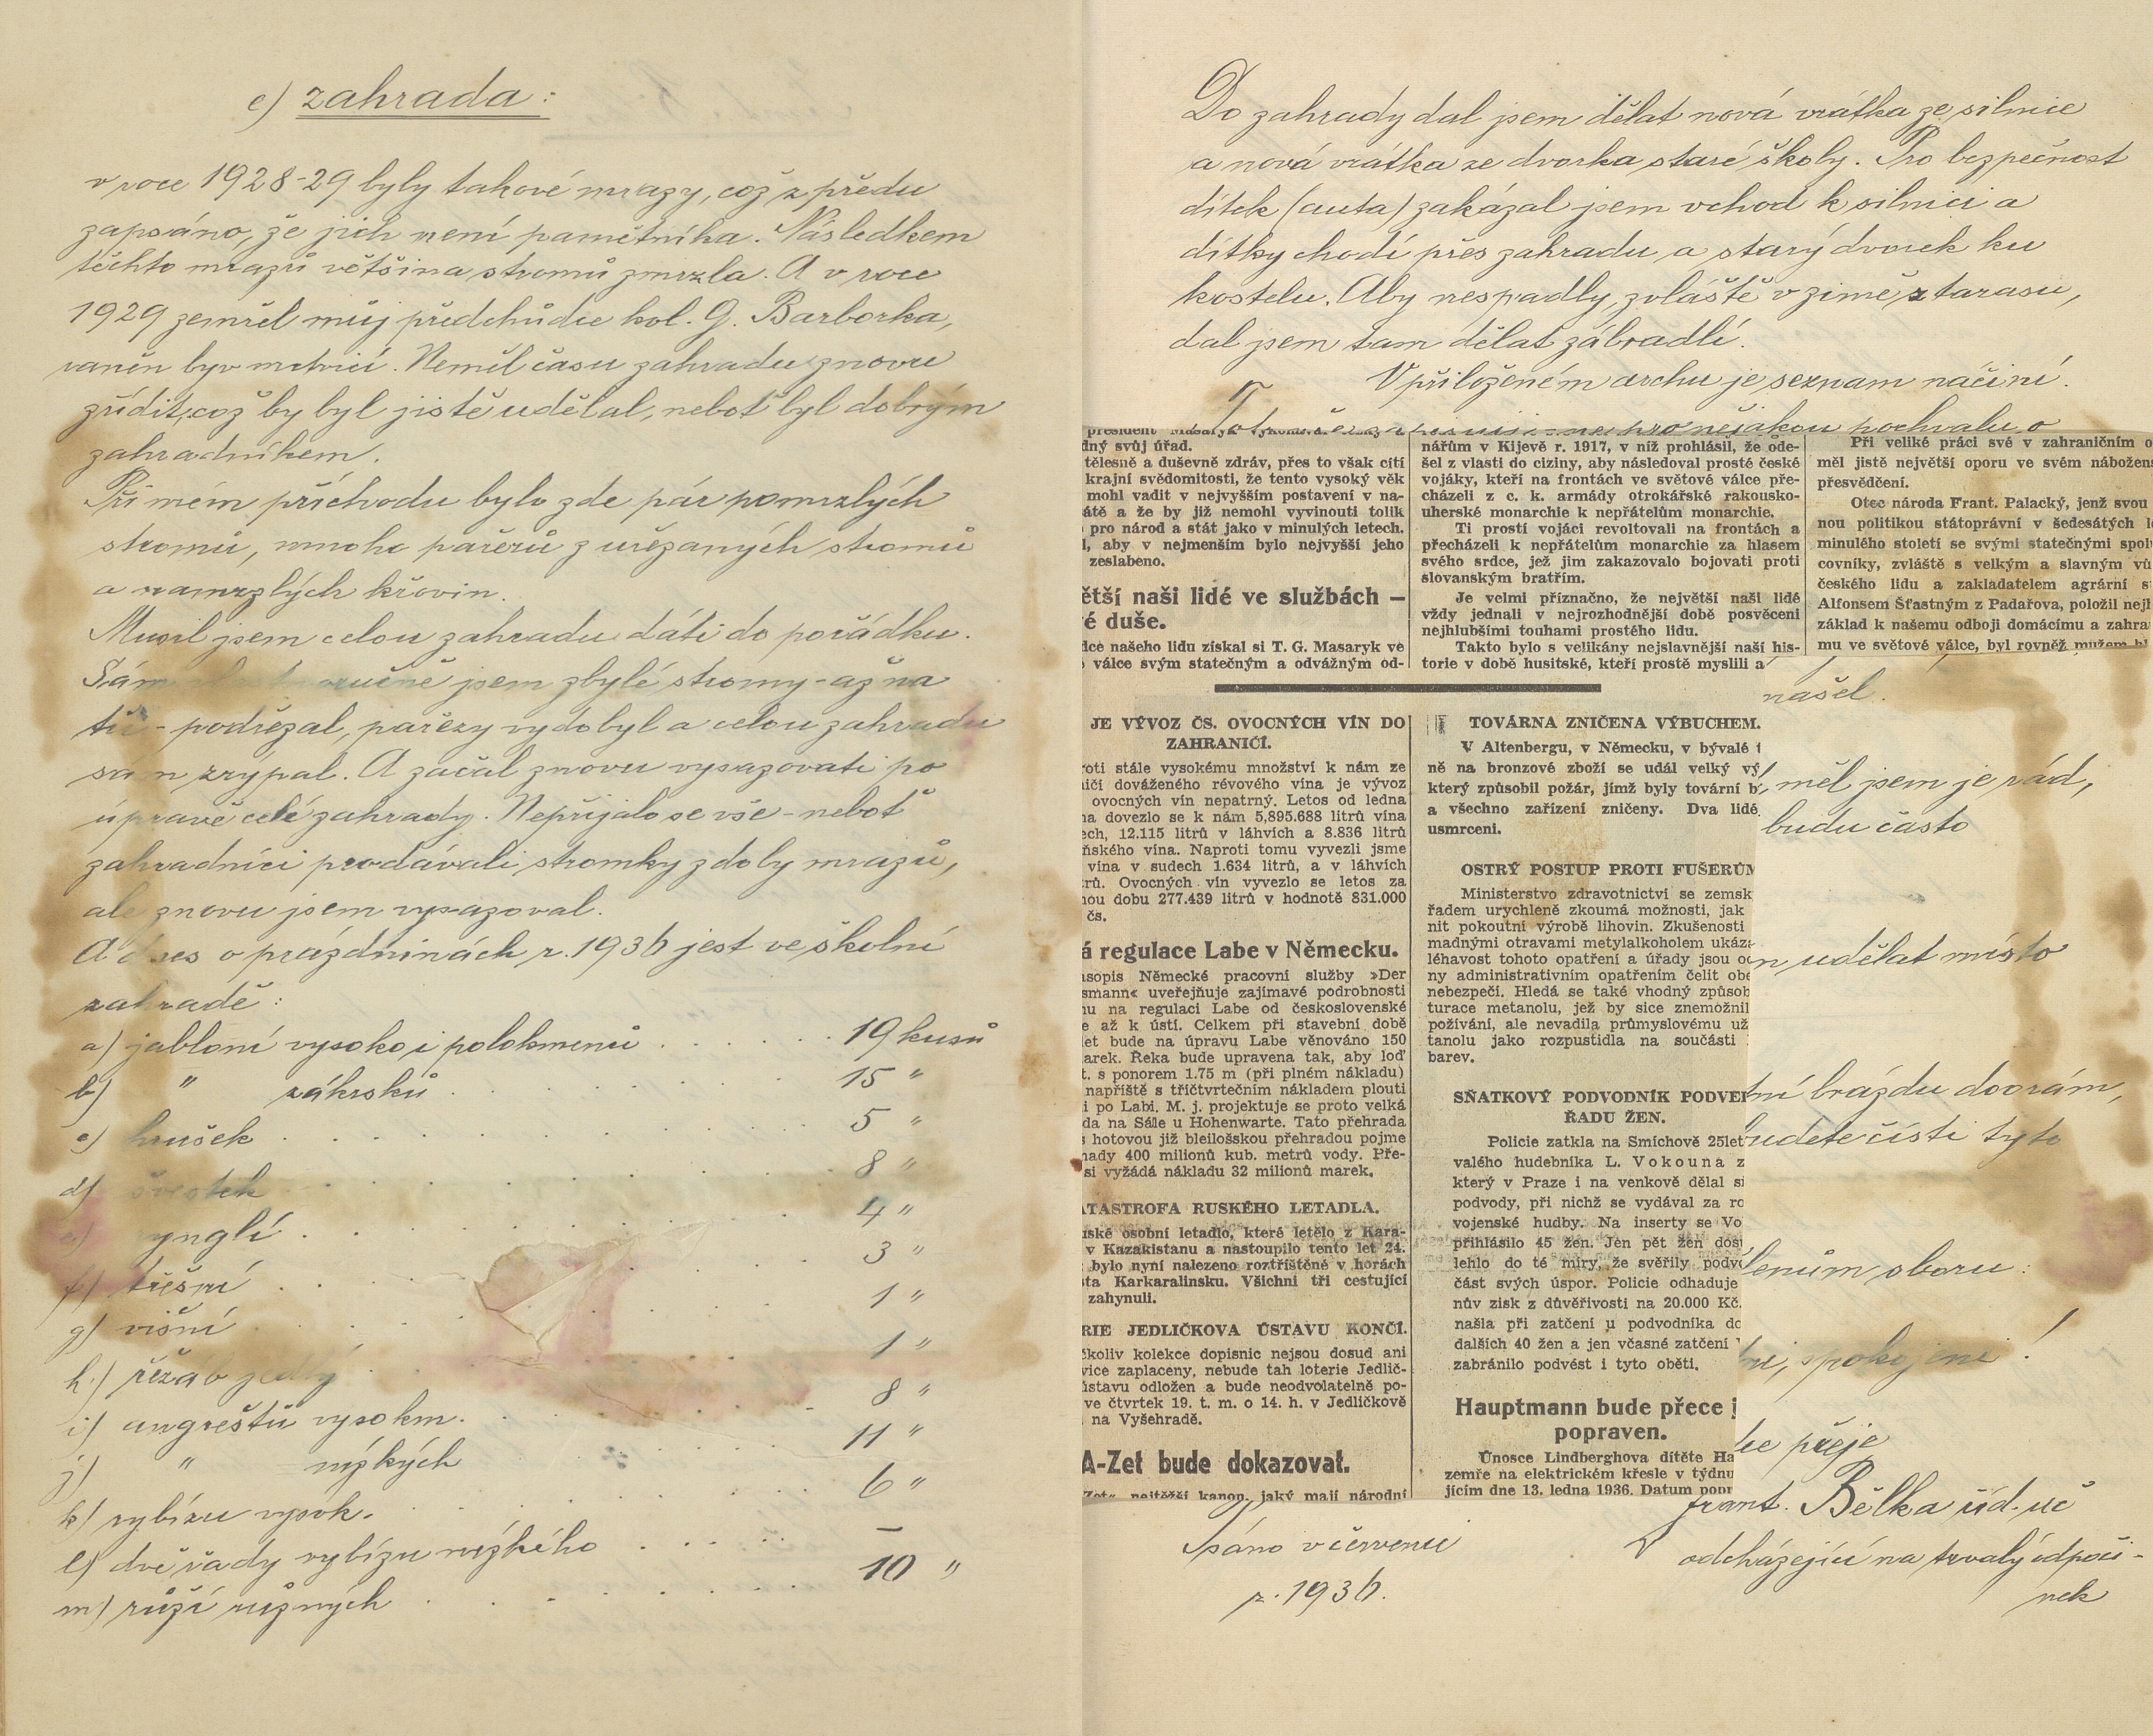 c) zahrada:
v roce 1928-29 byly takové mrazy, což z předu
zapsáno, že jich není pamětníka. Následkem
těchto mrazů většina stromů zmrzla. A v roce
1929 zemřel můj předchůdce kol. G. Barborka,
raněn byv mrtvicí. Neměl času zahradu znovu
zřídit, což by byl jistě udělal, neboť byl dobrým
zahradníkem.
Při mém příchodu bylo zde pár pomrzlých
stromů, mnoho pařezů z uřezaných stromů
a namrzlých křovin.
Musil jsem celou zahradu dáti do pořádku.
Sám jsem zbylé stromy - až na
tři - podřezal, pařezy vydobyl a celou zahradu
sám zrýpal. A začal znovu vysazovati po
úpravě celé zahrady. Nepřijalo se vše - neboť
zahradníci prodávali stromky z doby mrazů,
ale znovu jsem vysazoval.
A dnes o prázdninách r. 1936 jest ve školní
zahradě:
a) jabloní vysoko i polokmenů . . . . . . 19 kusů
b) " zákrsků . . . . . . 15 "
c) hrušek . . . . . . 5 "
d) švestek . . . . . . 8 "
e) rynglí . . . . . . 4 "
f) třešní . . . . . . 3 "
g) višní . . . . . . 1 "
h) řeřáb jedlý . . . . . . 1 "
i) angreštů vysokm. . . . . . 8 "
j) " nízkých . . . . . 11 "
k) rybízu vysok. . . . . . 6 "
l) dvě řady rybízu nízkého . . . . . —
m) růží různých . . . . . . 10 "
Do zahrady dal jsem dělat nová vrátka ze silnice
a nová vrátka ze dvorka staré školy. Pro bezpečnost
dítek (auta) zakázal jsem vchod k silnici a
dítky chodí přes zahradu a starý dvorek ku
kostelu. Aby nespadly, zvláště v zimě z tarasu,
dal jsem tam dělat zábradlí.
V přiloženém archu je seznam náčiní.
pro nějakou pochvalu o
president Masaryk
dný svůj úřad.
tělesně a duševně zdráv, přes to však cítí
krajní svědomitosti, že tento vysoký věk
mohl vadit v nejvyšším postavení v na-
átě a že by již nemohl vyvinouti tolik
pro národ a stát jako v minulých letech.
l, aby v nejmenším bylo nejvyšší jeho
zeslabeno.
ětší naši lidé ve službách —
é duše.
dce našeho lidu získal si T. G. Masaryk ve
válce svým statečným a odvážným od-
nářům v Kijevě r. 1917, v níž prohlásil, že ode-
šel z vlasti do ciziny, aby následoval prosté české
vojáky, kteří na frontách ve světové válce pře-
cházeli z c. k. armády otrokářské rakousko-
uherské monarchie k nepřátelům monarchie.
Ti prostí vojáci revoltovali na frontách a
přecházeli k nepřátelům monarchie za hlasem
svého srdce, jež jim zakazovalo bojovati proti
slovanským bratřím.
Je velmi příznačno, že největší naši lidé
vždy jednali v nejrozhodnější době posvěceni
nejhlubšími touhami prostého lidu.
Takto bylo s velikány nejslavnější naší his-
torie v době husitské, kteří prostě myslili a
Při veliké práci své v zahraničním o
měl jistě největší oporu ve svém nábožens
přesvědčení.
Otec národa Frant. Palacký, jenž svou
nou politikou státoprávní v šedesátých le
minulého století se svými statečnými spolu
covníky, zvláště s velkým a slavným vů
českého lidu a zakladatelem agrární s
Alfonsem Šťastným z Padařova, položil nejh
základ k našemu odboji domácímu a zahra
mu ve světové válce, byl rovněž mužem
našel.
JE VÝVOZ ČS. OVOCNÝCH VÍN DO
ZAHRANIČÍ.
roti stále vysokému množství k nám ze
ičí dováženého révového vína je vývoz
ovocných vín nepatrný. Letos od ledna
na dovezlo se k nám 5,895.688 litrů vína
ech, 12.115 litrů v láhvích a 8.836 litrů
ňského vína. Naproti tomu vyvezli jsme
vína v sudech 1.634 litrů, a v láhvích
trů. Ovocných vín vyvezlo se letos za
nou dobu 277.439 litrů v hodnotě 831.000
čs.
á regulace Labe v Německu.
asopis Německé pracovní služby »Der
smann« uveřejňuje zajímavé podrobnosti
nu na regulaci Labe od československé
e až k ústí. Celkem při stavební době
let bude na úpravu Labe věnováno 150
arek. Řeka bude upravena tak, aby loď
t. s ponorem 1.75 m (při plném nákladu)
napříště s tříčtvrtečním nákladem plouti
i po Labi. M. j. projektuje se proto velká
da na Sále u Hohenwarte. Tato přehrada
s hotovou již bleilošskou přehradou pojme
nady 400 milionů kub. metrů vody. Pře-
si vyžádá nákladu 32 milionů marek.
ATASTROFA RUSKÉHO LETADLA.
uské osobní letadlo, které letělo z Kara-
v Kazakistanu a nastoupilo tento let 24.
bylo nyní nalezeno roztříštěné v horách
sta Karkaralinsku. Všichni tři cestující
zahynuli.
RIE JEDLIČKOVA ÚSTAVU KONČÍ.
čkoliv kolekce dopisnic nejsou dosud ani
vice zaplaceny, nebude tah loterie Jedlič-
ústavu odložen a bude neodvolatelně po-
ve čtvrtek 19. t. m. o 14. h. v Jedličkově
na Vyšehradě.
A-Zet bude dokazovat.
Zet« nejtěžší kanon, jaký mají národní
TOVÁRNA ZNIČENA VÝBUCHEM.
V Altenbergu, v Německu, v bývalé t
ně na bronzové zboží se udál velký vý
který způsobil požár, jímž byly tovární b
a všechno zařízení zničeny. Dva lidé
usmrceni.
OSTRÝ POSTUP PROTI FUŠERŮM
Ministerstvo zdravotnictví se zemsk
řadem urychleně zkoumá možnosti, jak
nit pokoutní výrobě lihovin. Zkušenosti
madnými otravami metylalkoholem ukáza
léhavost tohoto opatření a úřady jsou oc
ny administrativním opatřením čelit obe
nebezpečí. Hledá se také vhodný způsob
turace metanolu, jež by sice znemožnil
požívání, ale nevadila průmyslovému už
tanolu jako rozpustidla na součásti
barev.
SŇATKOVÝ PODVODNÍK PODVE
ŘADU ŽEN.
Policie zatkla na Smíchově 25let
valého hudebníka L. Vokouna z
který v Praze i na venkově dělal si
podvody, při nichž se vydával za ro
vojenské hudby. Na inserty se Vo
přihlásilo 45 žen. Jen pět žen dos
lehlo do té míry, že svěřily podv
část svých úspor. Policie odhaduje
nův zisk z důvěřivosti na 20.000 Kč.
našla při zatčení u podvodníka do
dalších 40 žen a jen včasné zatčení
zabránilo podvést i tyto oběti.
Hauptmann bude přece j
popraven.
Únosce Lindberghova dítěte Ha
zemře na elektrickém křesle v týdnu
jícím dne 13. ledna 1936. Datum popr
měl jsem je rád,
budu často
udělat místo
ní brázdu doorám,
budete čísti tyto
lenům sboru:
ni, spokojeni!
ce přeje
Frant. Bělka říd. uč
odcházející na trvalý odpoči-
nek
Psáno v červenci
r. 1936.